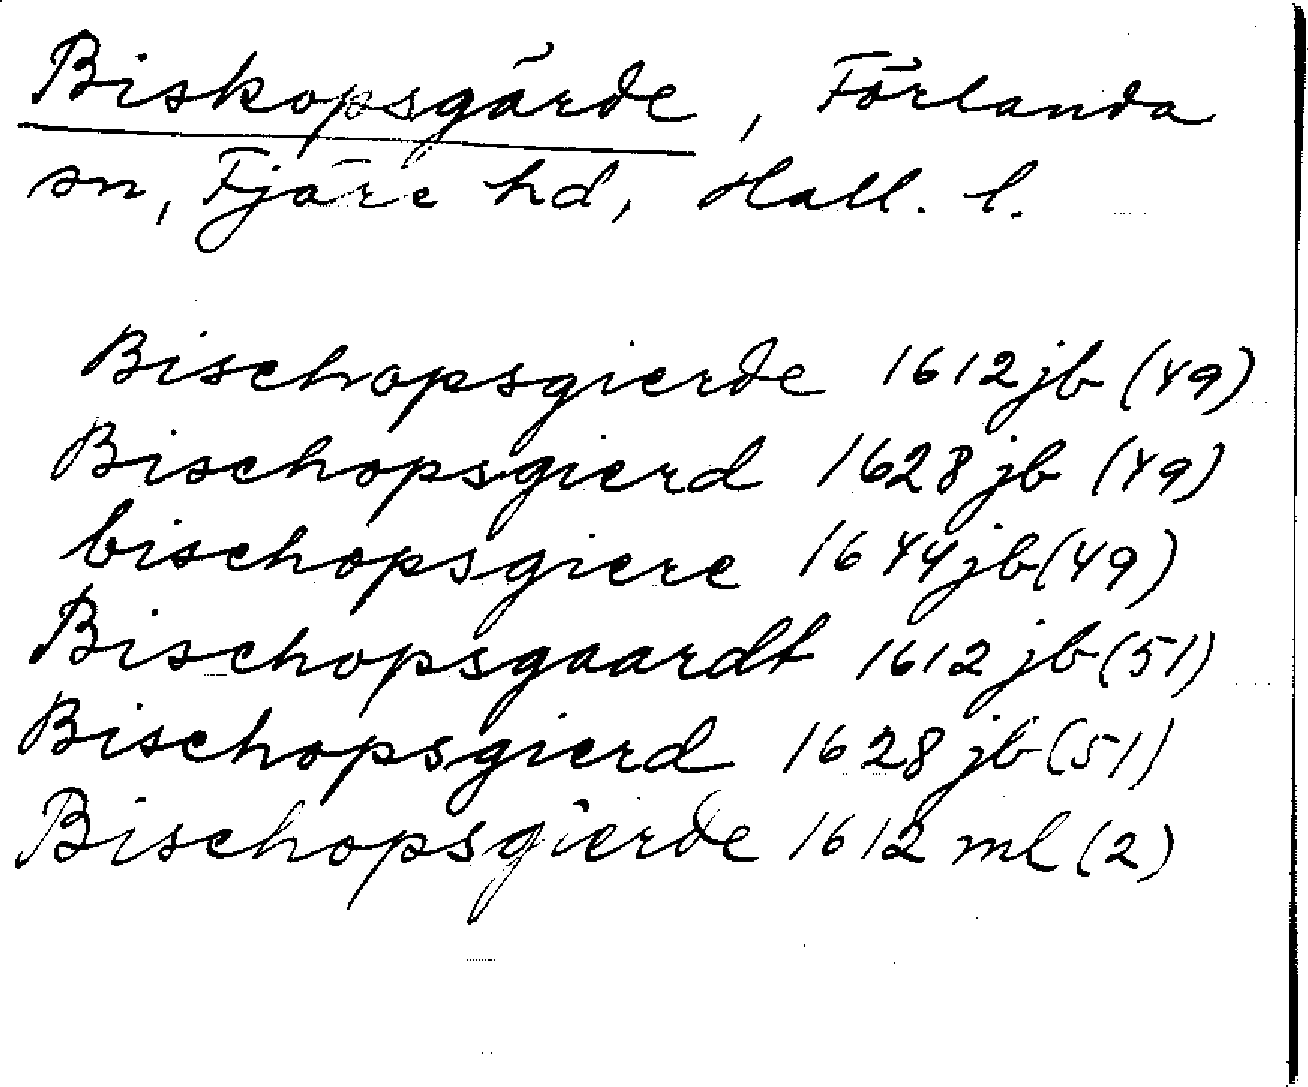 Biskopsgärde, Förlanda
sn, Fjäre hd, Hall. l.
Bischopsgierde 1612 jb (49)
Bischopsgierd 1628 jb (49)
bischopsgiere 1644 jb (49)
Bischopsgaardt 1612 jb (51)
Bischopsgierd 1628 jb (51)
Bischopsgierde 1612 ml (2)